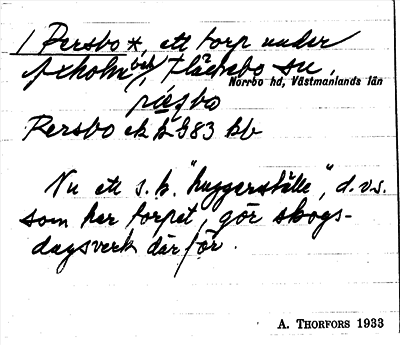 1 Persbo *, ett torp under
Axholm bel. i Fläckebo sn,
Norrbo hd, Västmanlands län
pæsbo
Persbo ek
Nu ett s.k. "huggareställe", d.v.s.
som har torpet, gör skogs-
dagsverk därför.
A. THORFORS 1933